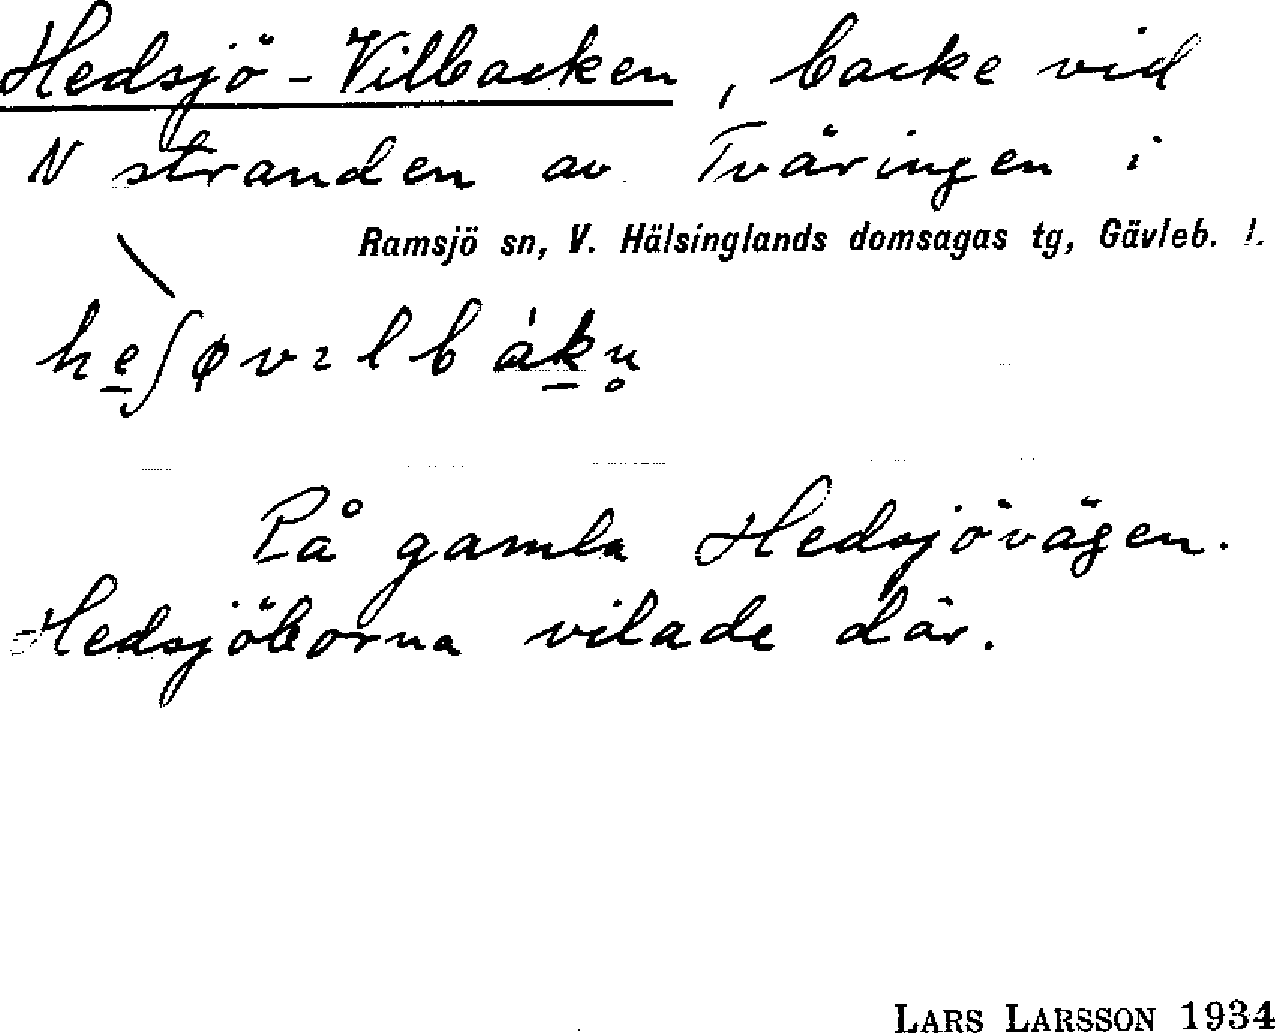 Hedsjö-Vilbacken, backe vid
N stranden av Tväringen i
Ramsjö sn, V. Hälsinglands domsagas tg, Gävleb. l.
På gamla Hedsjövägen.
Hedsjöborna vilade där.
LARS LARSSON 1934